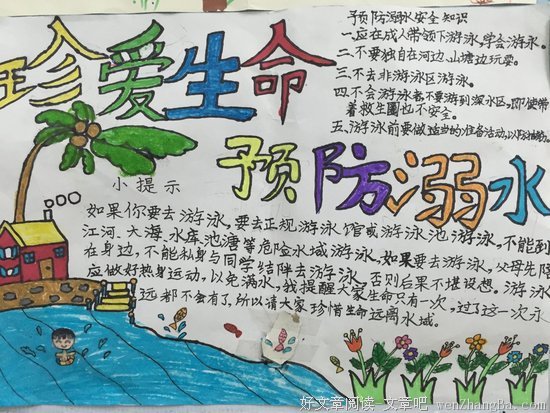 珍爱生命
预防溺水安全知识
一、应在成人带领下游泳,学会游泳。
二、不要独自在河边、山塘边玩耍。
三、不去非游泳区游泳。
四、不会游泳者,不要游到深水区,即使带
着救生圈也不安全。
五、游泳前要做适当的准备活动,以防抽筋。
预防溺水
小提示
如果你要去游泳,要去正规游泳馆或游泳池游泳,不能到
江河、大海、水库池塘等危险水域游泳,如果要去游泳,父母先陪
在身边,不能私身与同学结伴去游泳,否则后果不堪设想。游泳
应做好热身运动,以免满水,我提醒大家生命只有一次,过了这一次永
远都不会有了,所以请大家珍惜生命远离水域。
好文章阅读-文章吧-wenZhangBa.com